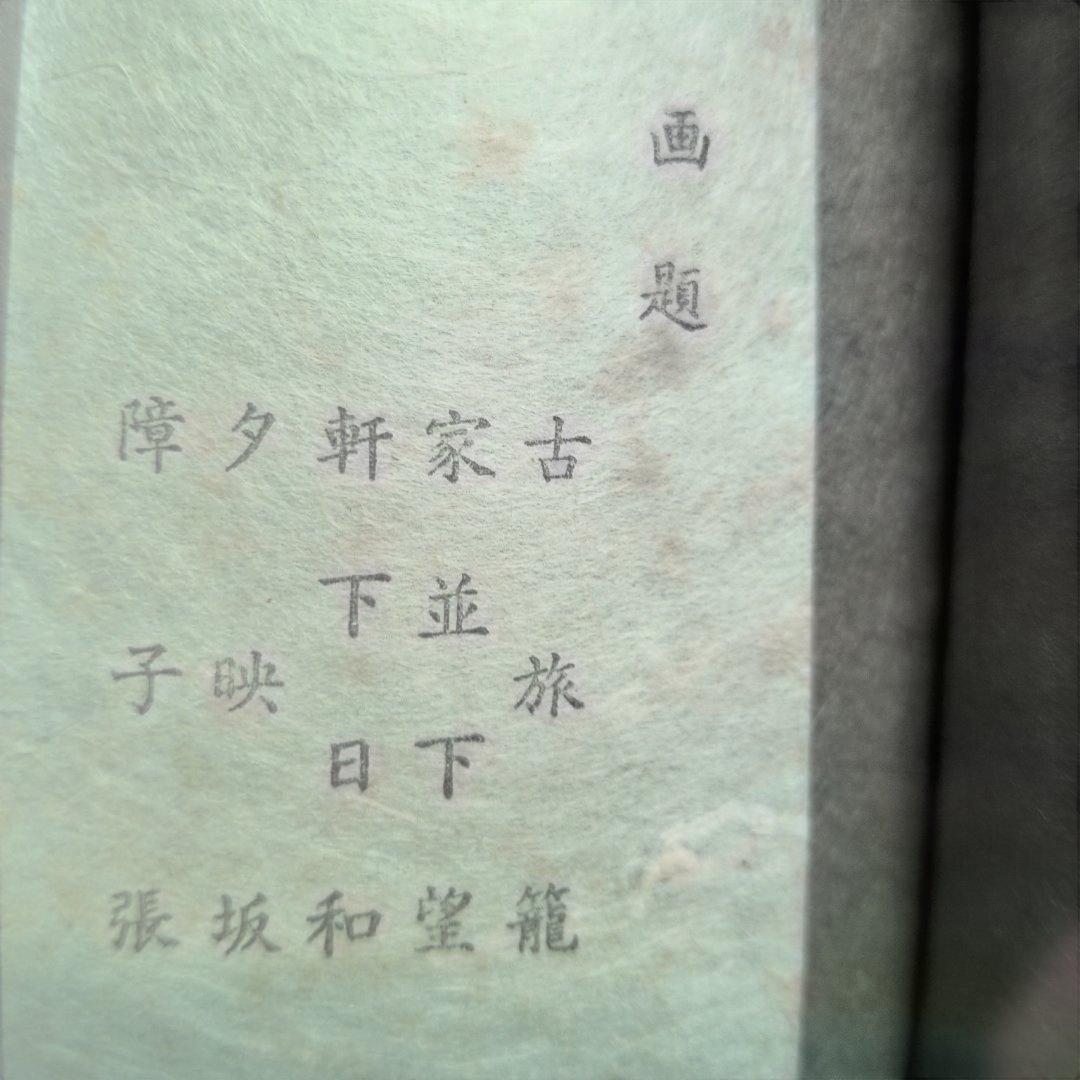 画題
古旅籠
家並下望
軒下日和
夕映坂
障子張